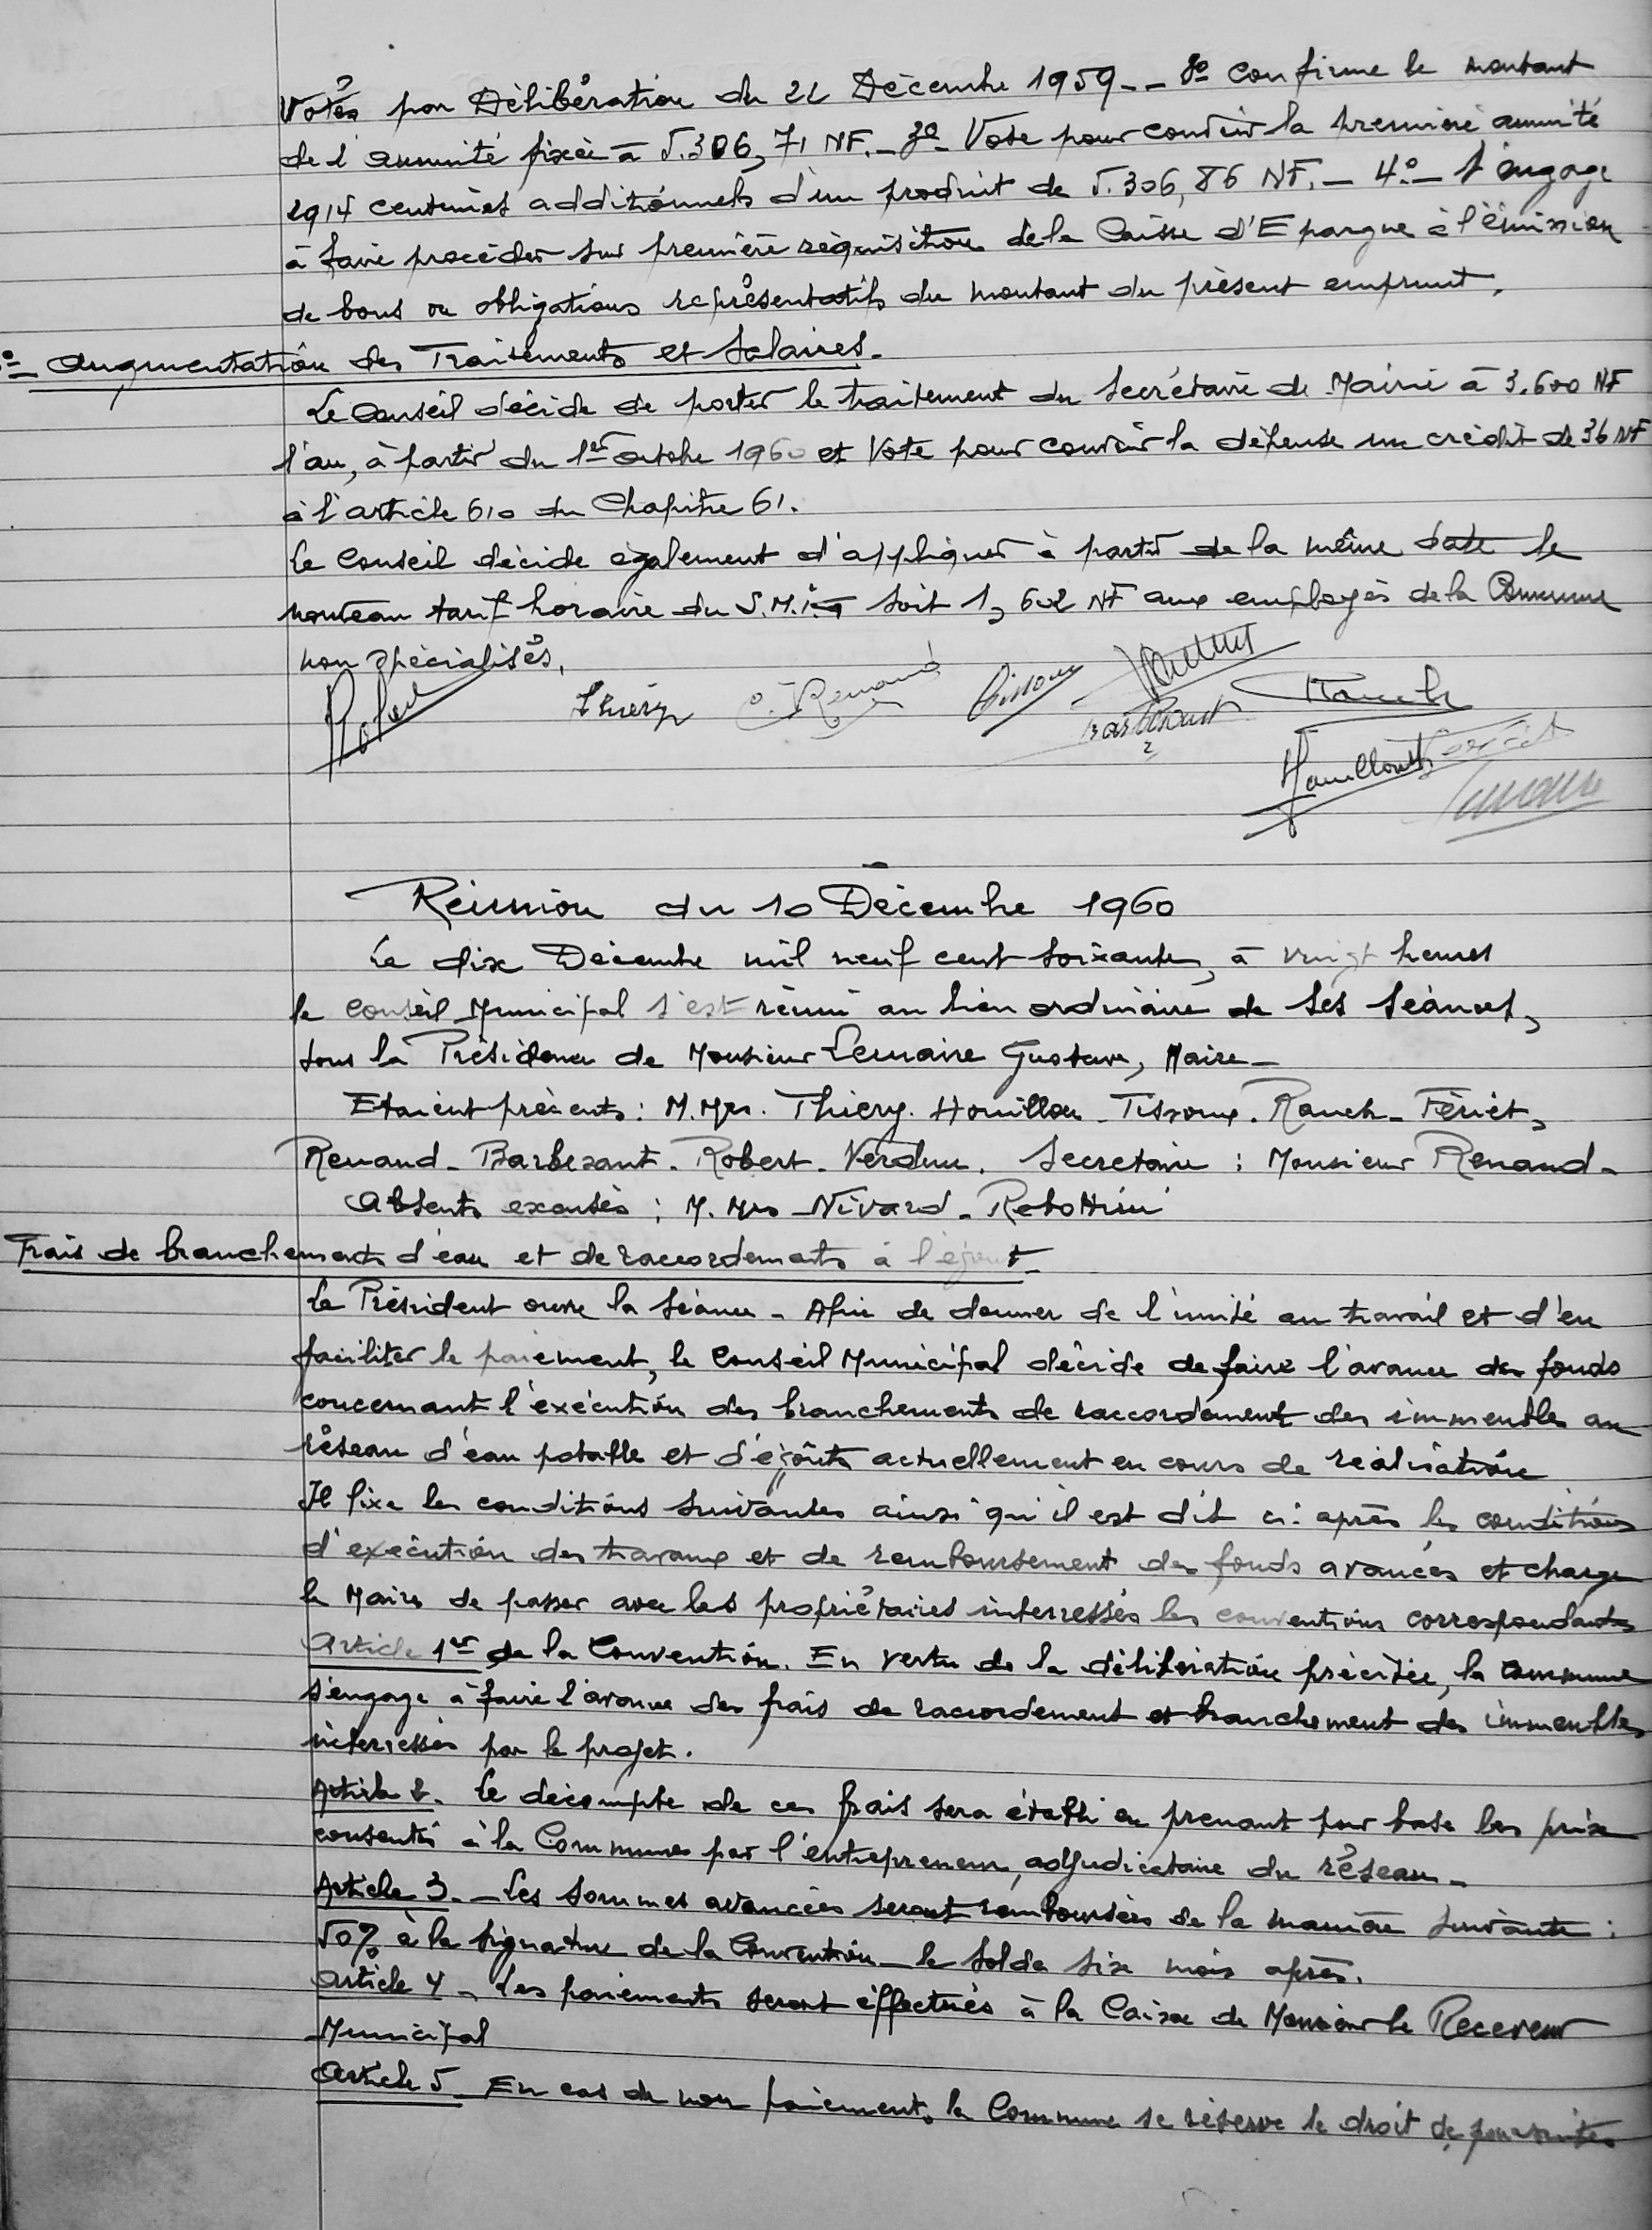 Votés par Délibération du 22 Décembre 1959 -- 2º Confirme le montant
de l'annuité fixée à 5.306,71 NF. - 3º- Vote pour couvrir la première annuité
2914 centimes additionnels d'un produit de 5.306,86 NF. - 4º- S'engage
à faire procéder sur première réquisition de la Caisse d'Epargne à l'émission
de bons ou obligations représentatifs du montant du présent emprunt.
º- Augmentation des Traitements et Salaires.
Le Conseil décide de porter le traitement du Secrétaire de Mairie à 3.600 NF
l'an, à partir du 1er Octobre 1960 et Vote pour couvrir la dépense un crédit de 36 NF
à l'article 610 du Chapitre 61.
Le Conseil décide également d'appliquer à partir de la même date le
nouveau tarif horaire du S.M.I.G soit 1,602 NF aux employés de la Commune
non spécialisés.
Robert Thiéry C. Renaud Tissoux Barbezant Rauch
Houillon Fériet
Lemaire
Réunion du 10 Décembre 1960
Le dix Décembre mil neuf cent soixante, à vingt heures
le Conseil Municipal s'est réuni au lieu ordinaire de ses séances,
sous la Présidence de Monsieur Lemaire Gustave, Maire -
Etaient présents : M.Mrs. Thiery. Houillon - Tissoux. Rauch - Fériet,
Renaud - Barbezant. Robert - Verdun. Secrétaire : Monsieur Renaud -
Absents excusés : M. Mrs Nivard - Robottini
Frais de branchements d'eau et de raccordements à l'égout -
Le Président ouvre la Séance - Afin de donner de l'unité au travail et d'en
faciliter le paiement, le Conseil Municipal décide de faire l'avance des fonds
concernant l'exécution des branchements de raccordement des immeubles au
réseau d'eau potable et d'égoûts actuellement en cours de réalisation
Il fixe les conditions suivantes ainsi qu'il est dit ci-après les conditions
d'exécution des travaux et de remboursement des fonds avancés et charge
le Maire de passer avec les propriétaires interressés les conventions correspondantes
Article 1er de la Convention. En vertu de la délibération précitée, la Commune
s'engage à faire l'avance des frais de raccordement et branchement des immeubles
interressés par le projet.
Article 2. Le décompte de ces frais sera établi en prenant pour base les prix
consentis à la Commune par l'entrepreneur, adjudicataire du réseau -
Article 3. - Les sommes avancées seront remboursées de la manière suivante :
50% à la signature de la Convention - le solde six mois après.
Article 4 - Les paiements seront éffectués à la Caisse de Monsieur le Receveur
Municipal
Article 5 - En cas de non paiement, la Commune se réserve le droit de poursuites